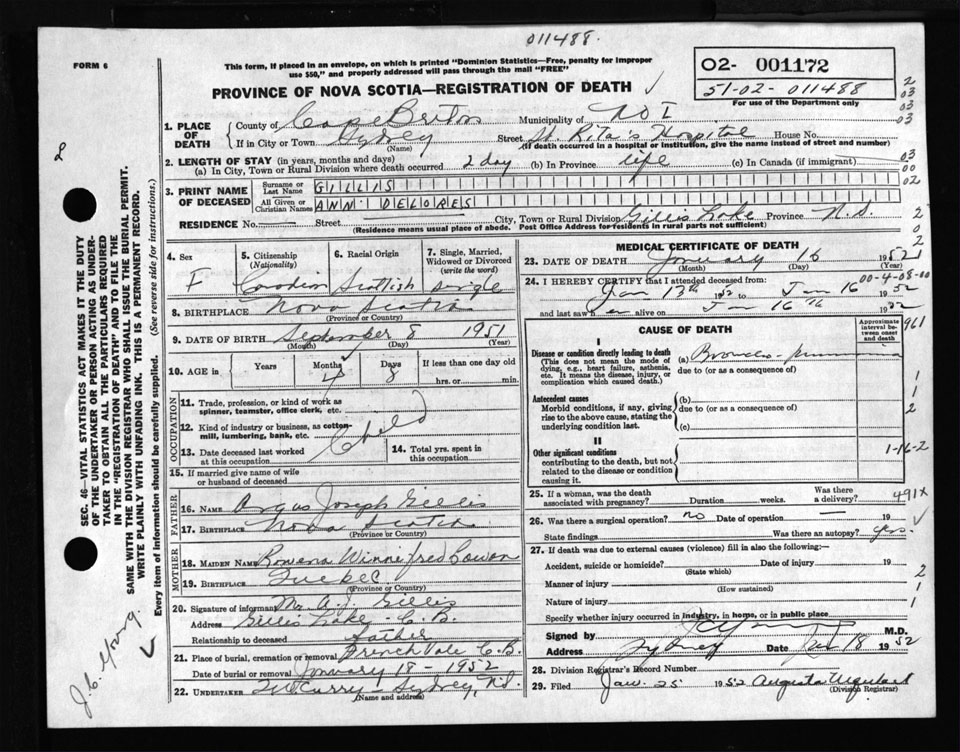 011488.
FORM 6
This form, if placed in an envelope, on which is printed "Dominion Statistics—Free, penalty for improper
use $50," and properly addressed will pass through the mail "FREE"
PROVINCE OF NOVA SCOTIA—REGISTRATION OF DEATH
O2- 001172
51-02-011488
For use of Department only.
1. PLACE OF DEATH
County of Cape Breton Municipality of
If in City or Town. Sydney (Name) Street St. Rita's Hospital House No.
(If death occurred in a hospital or institution, give the name instead of street and number)
2. LENGTH OF STAY (in years, months and days)
(a) In City, Town or Rural Division where death occurred 2 day (b) In Province life (c) In Canada (if immigrant)
3. PRINT NAME OF DECEASED
Surname or Last Name GILLIS
All Given or Christian Names ANN DELORES
RESIDENCE No. — Street City, Town or Rural Division Gillis Lake Province N.S.
(Residence means usual place of abode. Post Office Address for residents in rural parts not sufficient)
4. Sex F
5. Citizenship (Nationality) Canadian
6. Racial Origin Scottish
7. Single, Married, Widowed or Divorced (write the word) single
8. BIRTHPLACE Nova Scotia
(Province or Country)
9. DATE OF BIRTH September 8 1951
(Month) (Day) (Year)
10. AGE in Years Months 4 Days 8 If less than one day old
hrs. or min.
OCCUPATION
11. Trade, profession, or kind of work as
spinner, teamster, office clerk, etc.
12. Kind of industry or business, as cotton-
mill, lumbering, bank, etc.
Child
13. Date deceased last worked
at this occupation
14. Total yrs. spent in
this occupation
15. If married give name of wife
or husband of deceased
FATHER
16. NAME Angus Joseph Gillis
17. BIRTHPLACE Nova Scotia
(Province or Country)
MOTHER
18. MAIDEN NAME Rowena Winnifred Cowan
19. BIRTHPLACE Quebec
(Province or Country)
20. Signature of informant Mr. A. J. Gillis
Address Gillis Lake - C.B.
Relationship to deceased father
21. Place of burial, cremation or removal Frenchvale C.B.
Date of burial or removal January 18 - 1952
22. UNDERTAKER McCurry - Sydney, N.S.
(Name and address)
MEDICAL CERTIFICATE OF DEATH
23. DATE OF DEATH January 16 1952
(Month) (Day) (Year)
24. I HEREBY CERTIFY that I attended deceased from:
00-4-08-00
Jan 13th 1952 to Jan 16 1952
and last saw her alive on Jan 16th 1952
CAUSE OF DEATH
Approximate interval between onset and death
I
Disease or condition directly leading to death
(This does not mean the mode of
dying, e.g., heart failure, asthenia,
etc. It means the disease, injury, or
complication which caused death.)
(a) Broncho-pneumonia
due to (or as a consequence of)
Antecedent causes
Morbid conditions, if any, giving
rise to the above cause, stating the
underlying condition last.
(b)
due to (or as a consequence of)
(c)
II
Other significant conditions
contributing to the death, but not
related to the disease or condition
causing it.
1-16-2
25. If a woman, was the death
associated with pregnancy? Duration weeks. Was there a delivery?
491X
26. Was there a surgical operation? no Date of operation — 19
State findings Was there an autopsy? yes.
27. If death was due to external causes (violence) fill in also the following:—
Accident, suicide or homicide? Date of injury 19
(State which)
Manner of injury
(How sustained)
Nature of injury
Specify whether injury occurred in industry, in home, or in public place
Signed by M.D.
Address Sydney Date Jan 18 1952
28. Division Registrar's Record Number
29. Filed Jan. 25 1952 Augusta Urquhart
(Division Registrar)
SEC. 46—VITAL STATISTICS ACT MAKES IT THE DUTY
OF THE UNDERTAKER OR PERSON ACTING AS UNDER-
TAKER TO OBTAIN ALL THE PARTICULARS REQUIRED
IN THE "REGISTRATION OF DEATH" AND TO FILE THE
SAME WITH THE DIVISION REGISTRAR WHO SHALL ISSUE THE BURIAL PERMIT.
WRITE PLAINLY WITH UNFADING INK. THIS IS A PERMANENT RECORD.
Every item of information should be carefully supplied. (See reverse side for instructions.)
J.C. Young.